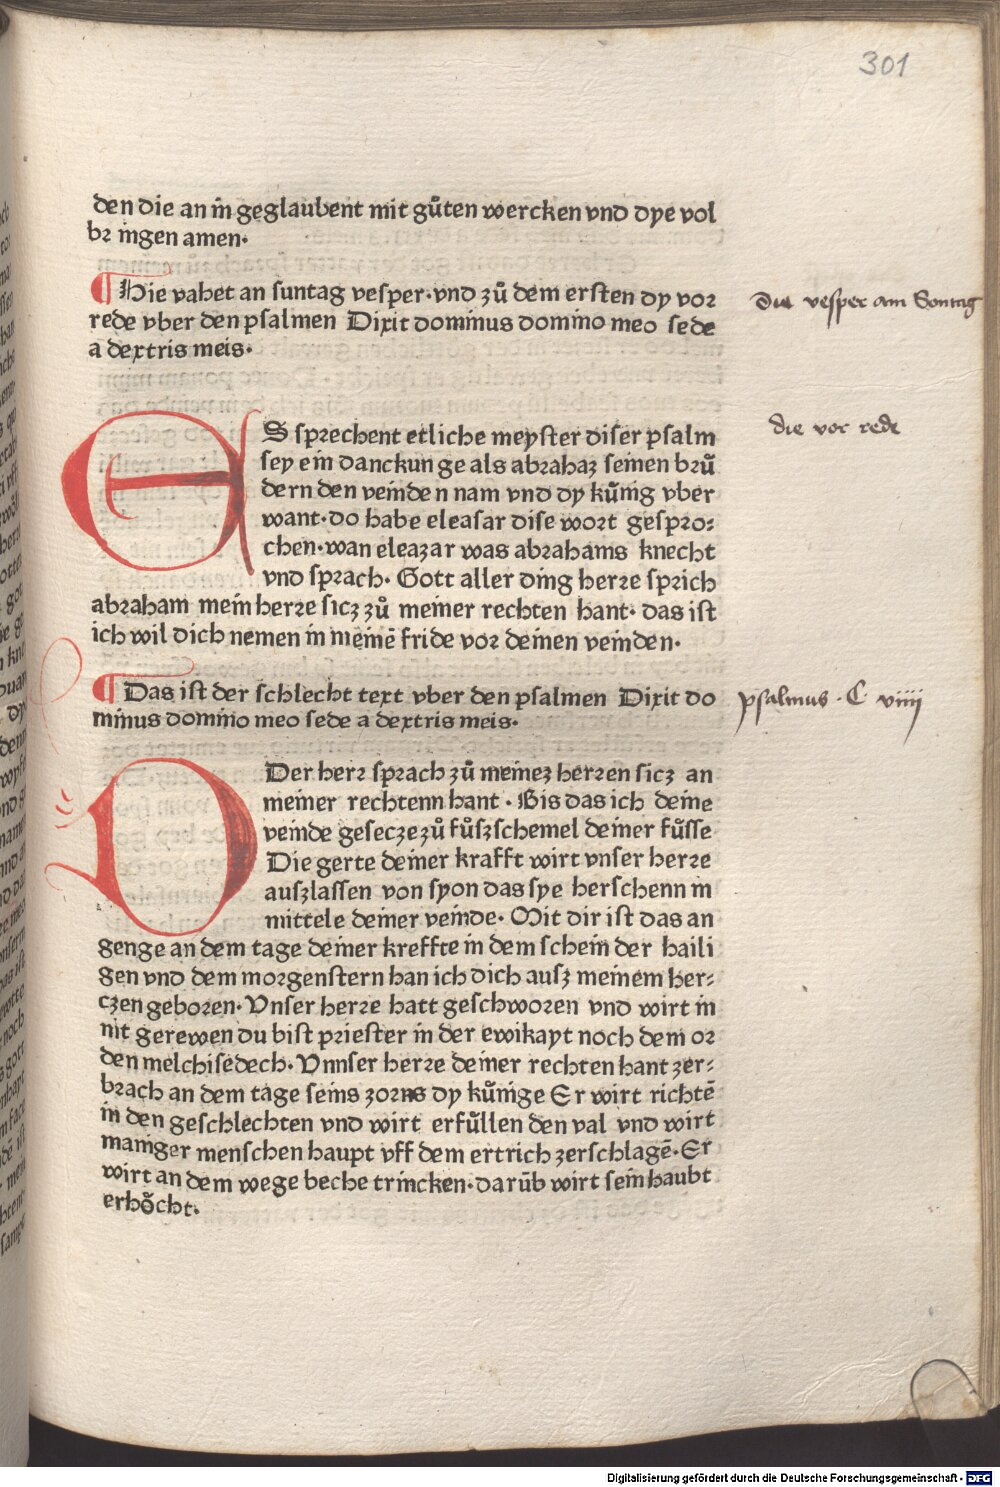 301
den die an in geglaubent mit gůten wercken vnd dye vol
bringen amen.
¶ Hie vahet an suntag vesper. vnd zů dem ersten dy vor
rede vber den psalmen Dixit dominus domino meo sede
a dextris meis.
Die vesper am Sontag
ES sprechent etliche meyster diser psalm
sey ein danckunge als abrahaz seinen brů
dern den veinden nam vnd dy kůnig vber
want. do habe eleasar dise wort gespro:
chen. wan eleazar was abrahams knecht
vnd sprach. Gott aller ding herre sprich
abraham mein herre sicz zů meiner rechten hant. das ist
ich wil dich nemen in meinē fride vor deinen veinden.
die vor rede
¶ Das ist der schlecht text vber den psalmen Dixit do
minus domino meo sede a dextris meis.
psalmus . C. viiii
DDer herr sprach zů meinez herren sicz an
meiner rechtenn hant. Bis das ich deine
veinde gesecze zů fůszschemel deiner fůsse
Die gerte deiner krafft wirt vnser herre
auszlassen von syon das sye herschenn in
mittele deiner veinde. Mit dir ist das an
genge an dem tage deiner kreffte in dem schein der haili
gen vnd dem morgenstern han ich dich ausz meinem her:
czen geboren. Vnser herre hatt geschworen vnd wirt in
nit gerewen du bist priester in der ewikayt noch dem or
den melchisedech. Vnnser herre deiner rechten hant zer:
brach an dem tage seins zorns dy kůnige Er wirt richtē
in den geschlechten vnd wirt erfůllen den val vnd wirt
maniger menschen haupt vff dem ertrich zerschlagē. Er
wirt an dem wege beche trincken. darūb wirt sein haubt
erhőcht.
Digitalisierung gefördert durch die Deutsche Forschungsgemeinschaft - DFG